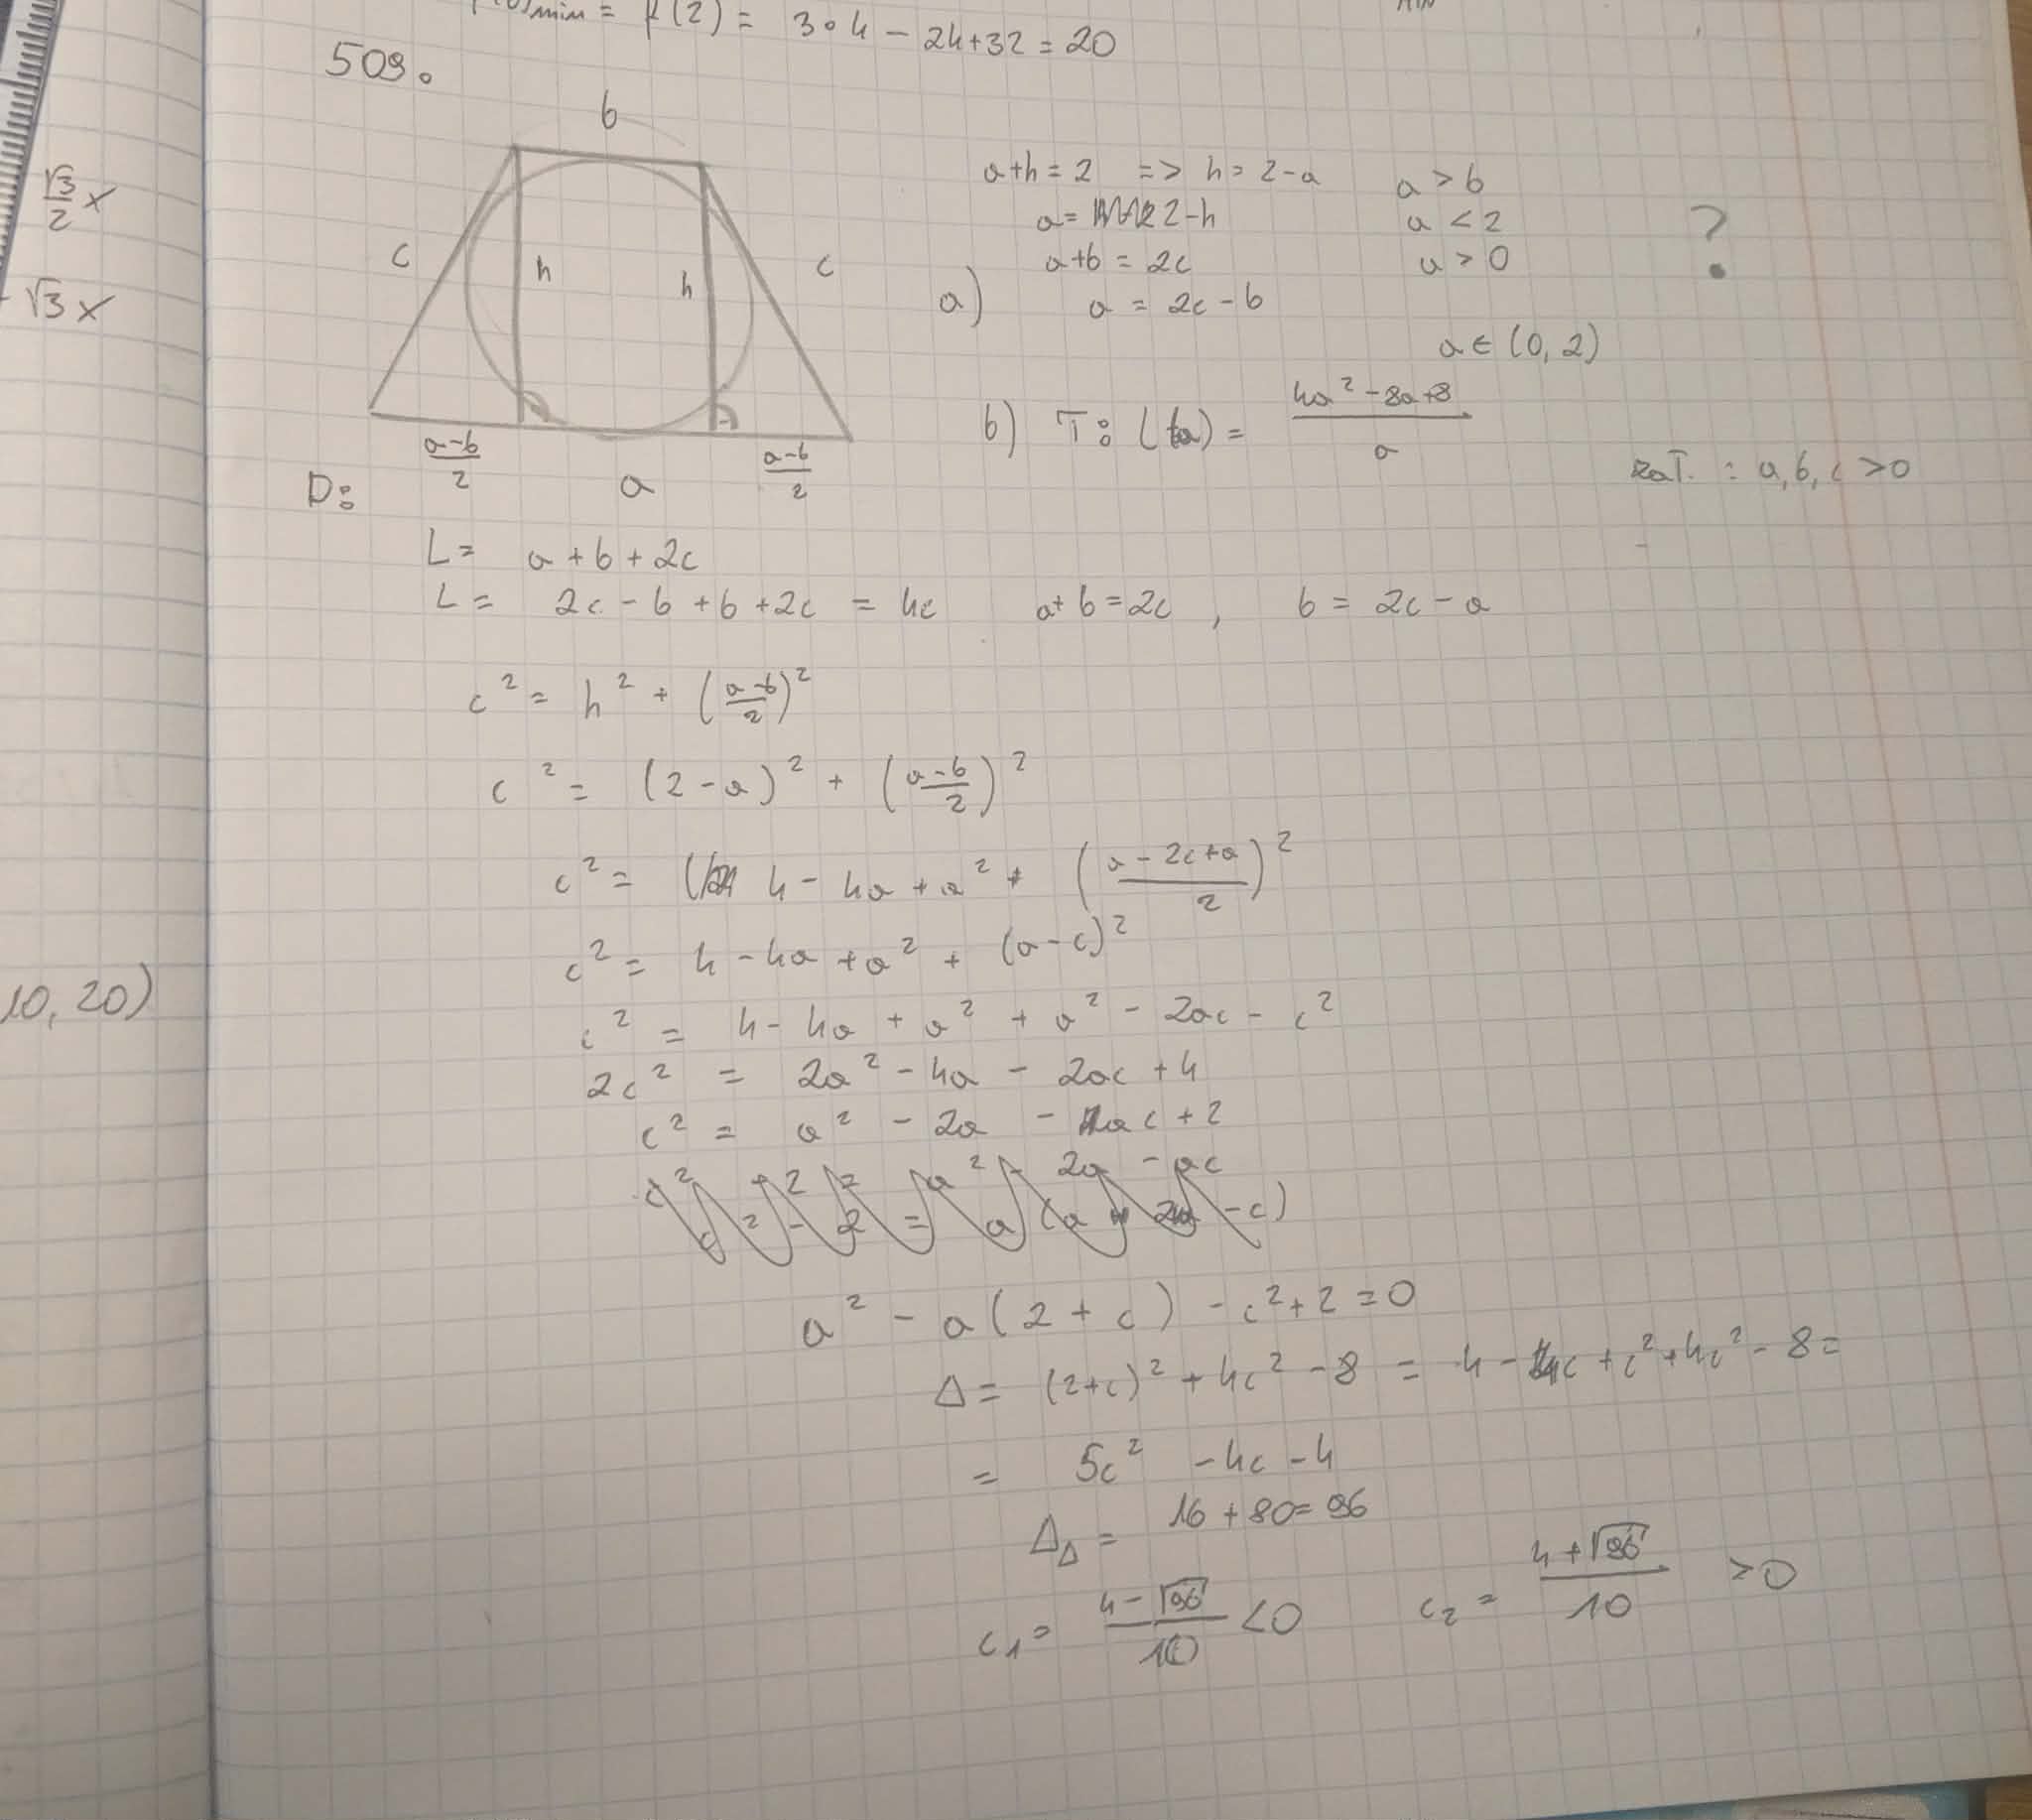 min = f(2) = 3∘4 - 24+32 = 20
509.
b
c
h
h
c
a-b/2
a
a-b/2
a+h = 2 => h = 2-a
a = 2-h
a+b = 2c
a) a = 2c - b
a > b
a < 2
a > 0
?
a ∈ (0, 2)
b) T: L(a) = 4a² - 8a + 8 / a
zaT. : a, b, c > 0
D:
L = a + b + 2c
L = 2c - b + b + 2c = 4c a + b = 2c , b = 2c - a
c² = h² + (a-b/2)²
c² = (2-a)² + (a-b/2)²
c² = 4 - 4a + a² + (a - 2c + a/2)²
c² = 4 - 4a + a² + (a-c)²
c² = 4 - 4a + a² + a² - 2ac - c²
2c² = 2a² - 4a - 2ac + 4
c² = a² - 2a - ac + 2
a² - a(2+c) - c² + 2 = 0
Δ = (2+c)² + 4c² - 8 = 4 - 4c + c² + 4c² - 8 =
= 5c² - 4c - 4
Δ_Δ = 16 + 80 = 96
c₁ = 4 - √96 / 10 < 0 c₂ = 4 + √96 / 10 > 0
√3/2 x
√3 x
10, 20)